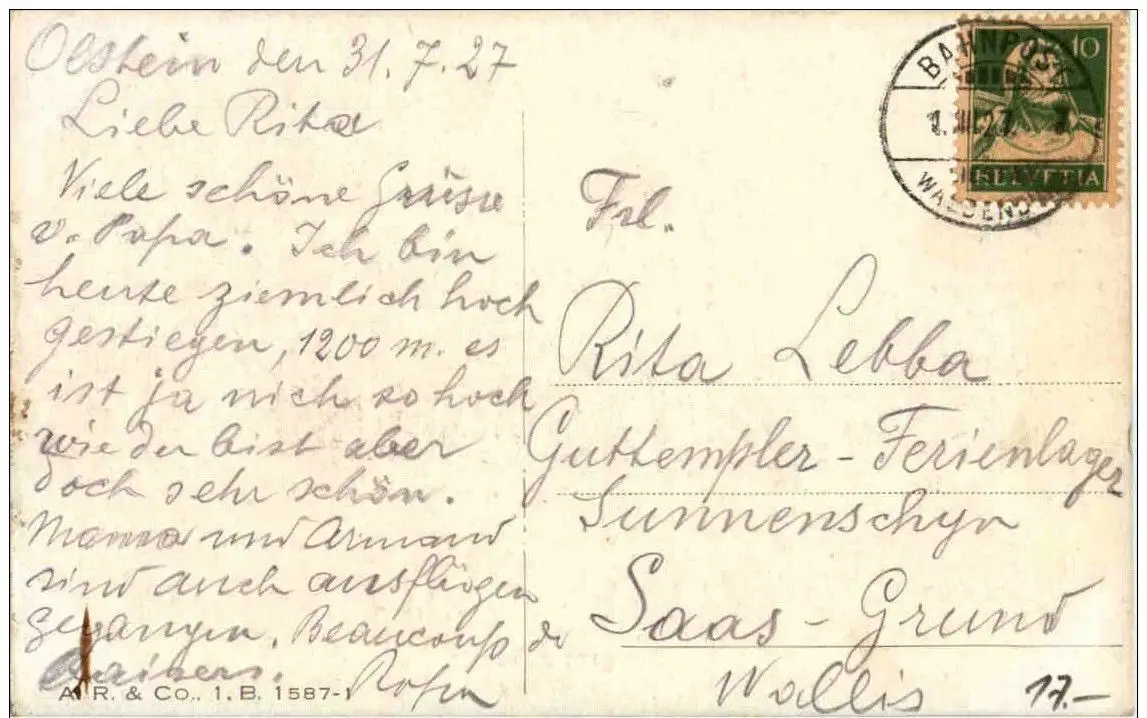 Olstein den 31.7.27
Liebe Rita
Viele schöne Grüsse
v. Papa. Ich bin
heute ziemlich hoch
gestiegen, 1200 m. es
ist ja nich so hoch
wie du bist aber
doch sehr schön.
Mama und Armand
sind auch ausflügen
gegangen. Beaucoup de
Baisers. Papa
A. R. & Co., I. B. 1587-1
BAHNPOST
1.VIII.27
WALDENB
10
HELVETIA
Frl.
Rita Lebba
Guttempler - Ferienlager
Sunnenschyn
Saas - Grund
Wallis
17.-